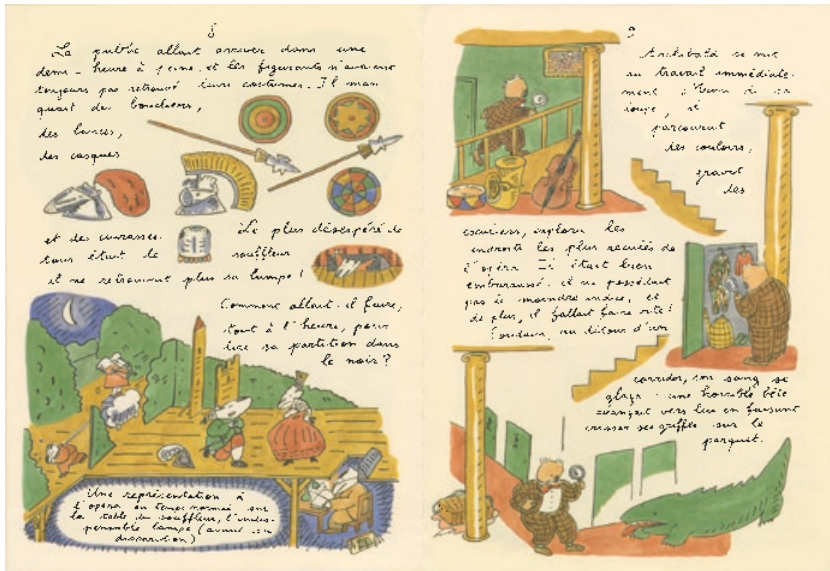 8
Le public allait arriver dans une
demi-heure à peine et les figurants n'avaient
toujours pas retrouvé leurs costumes. Il man
quait des boucliers,
des lances,
des casques
et des cuirasses. Le plus désespéré de
tous était le souffleur
il ne retrouvait plus sa lampe !
Comment allait-il faire,
tout à l'heure, pour
lire sa partition dans
le noir ?
Une représentation à
l'opéra en temps normal sur
la table du souffleur, l'indis-
pensable lampe (avant sa
disparition)
9
Archibald se mit
au travail immédiate-
ment. Muni de sa
loupe, il
parcourut
les couloirs,
gravit
les
escaliers, explora les
endroits les plus reculés de
l'opéra. Il était bien
embarrassé. il ne possédait
pas le moindre indice, et
de plus, il fallait faire vite !
Soudain, au détour d'un
corridor, son sang se
glaça : une horrible bête
avançait vers lui en faisant
crisser ses griffes sur le
parquet.